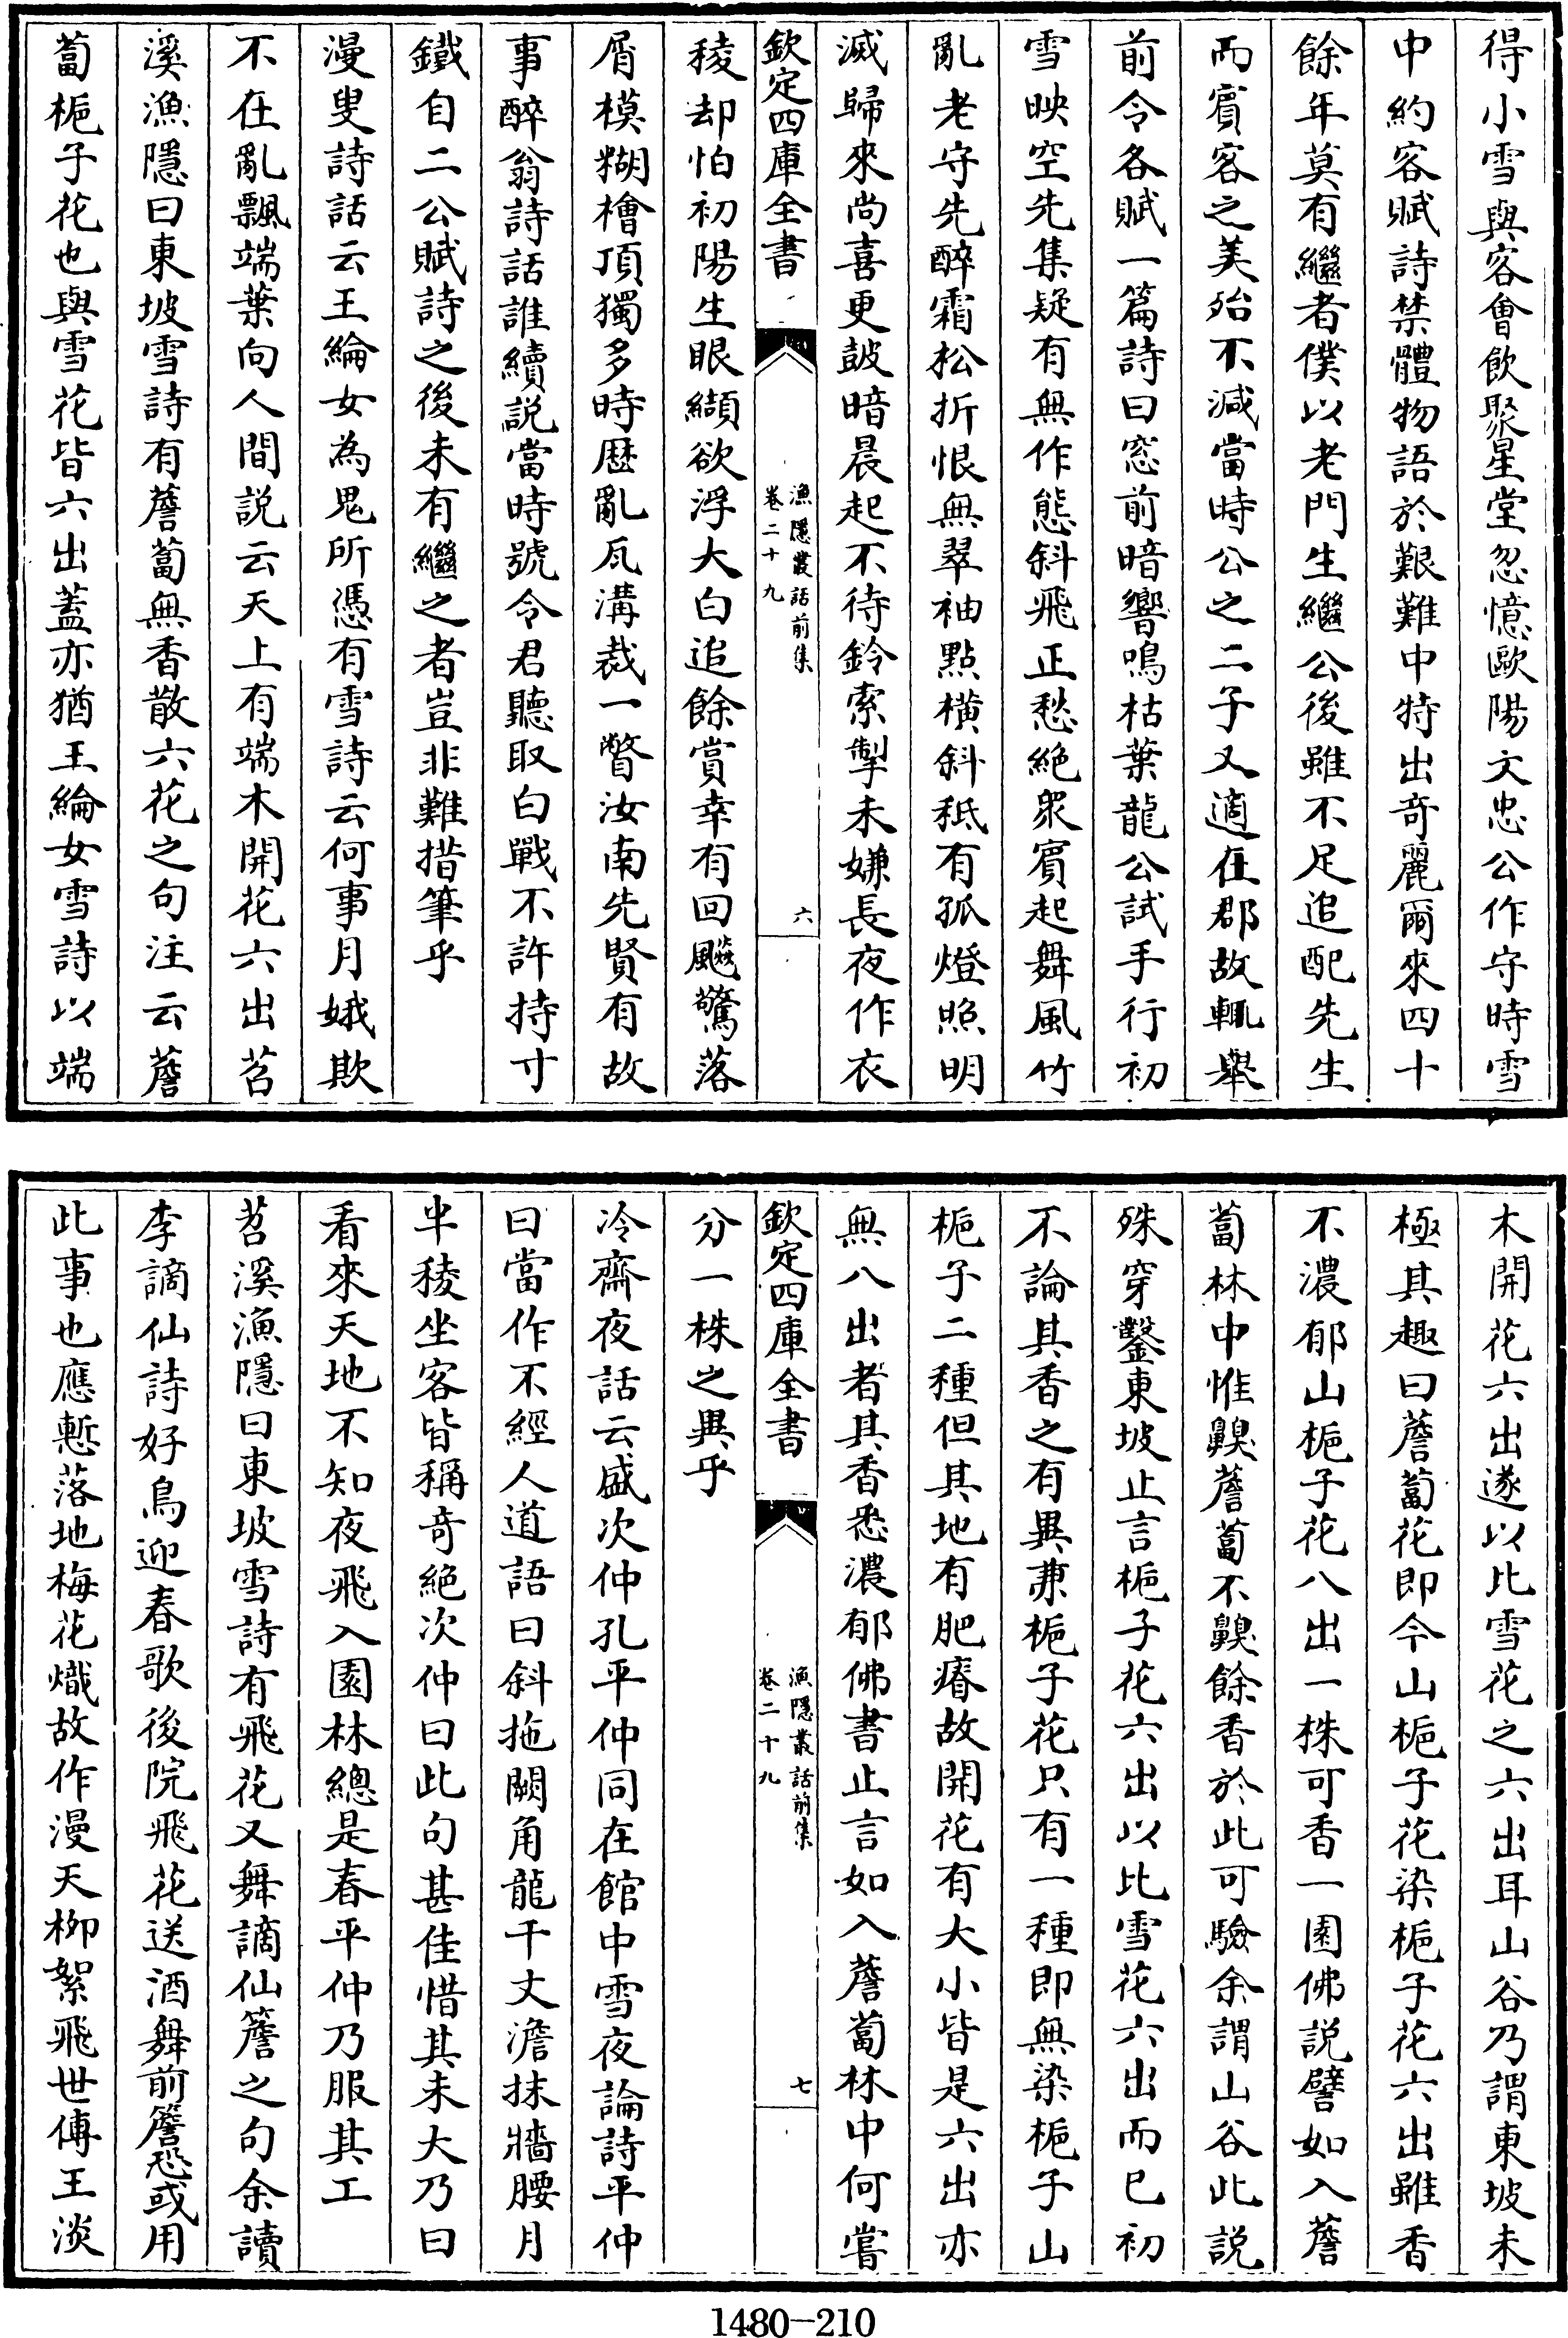 得小雪與客會飲聚星堂忽憶歐陽文忠公作守時雪
中約客賦詩禁體物語於艱難中特出奇麗爾來四十
餘年莫有繼者僕以老門生繼公後雖不足追配先生
而賓客之美殆不減當時公之二子又適在郡故輒舉
前令各賦一篇詩曰窓前暗響鳴枯葉龍公試手行初
雪映空先集疑有無作態斜飛正愁絶衆賓起舞風竹
亂老守先醉霜松折恨無翠袖點橫斜秪有孤燈照明
滅歸來尚喜更鼓暗晨起不待鈴索掣未嫌長夜作衣
欽定四庫全書
漁隱叢話前集
卷二十九
六
稜却怕初陽生眼纈欲浮大白追餘賞幸有回飈驚落
屑模糊檜頂獨多時歴亂瓦溝裁一瞥汝南先賢有故
事醉翁詩話誰續説當時號令君聽取白戰不許持寸
鐵自二公賦詩之後未有繼之者豈非難措筆乎
漫叟詩話云王綸女為鬼所憑有雪詩云何事月娥欺
不在亂飄端葉向人間説云天上有端木開花六出苕
溪漁隱曰東坡雪詩有薝蔔無香散六花之句注云薝
蔔栀子花也與雪花皆六出蓋亦猶王綸女雪詩以端
木開花六出遂以比雪花之六出耳山谷乃謂東坡未
極其趣曰薝蔔花即今山栀子花染栀子花六出雖香
不濃郁山栀子花八出一株可香一園佛説譬如入薝
蔔林中惟齅薝蔔不齅餘香於此可驗余謂山谷此説
殊穿鑿東坡止言栀子花六出以比雪花六出而已初
不論其香之有異兼栀子花只有一種即無染栀子山
栀子二種但其地有肥瘠故開花有大小皆是六出亦
無八出者其香悉濃郁佛書止言如入薝蔔林中何嘗
欽定四庫全書
漁隱叢話前集
卷二十九
七
分一株之異乎
冷齋夜話云盛次仲孔平仲同在館中雪夜論詩平仲
曰當作不經人道語曰斜拖闕角龍千丈澹抹牆腰月
半稜坐客皆稱奇絶次仲曰此句甚佳惜其未大乃曰
看來天地不知夜飛入園林總是春平仲乃服其工
苕溪漁隱曰東坡雪詩有飛花又舞謫仙簷之句余讀
李謫仙詩好鳥迎春歌後院飛花送酒舞前簷恐或用
此事也應慙落地梅花熾故作漫天柳絮飛世傳王淡
1480-210